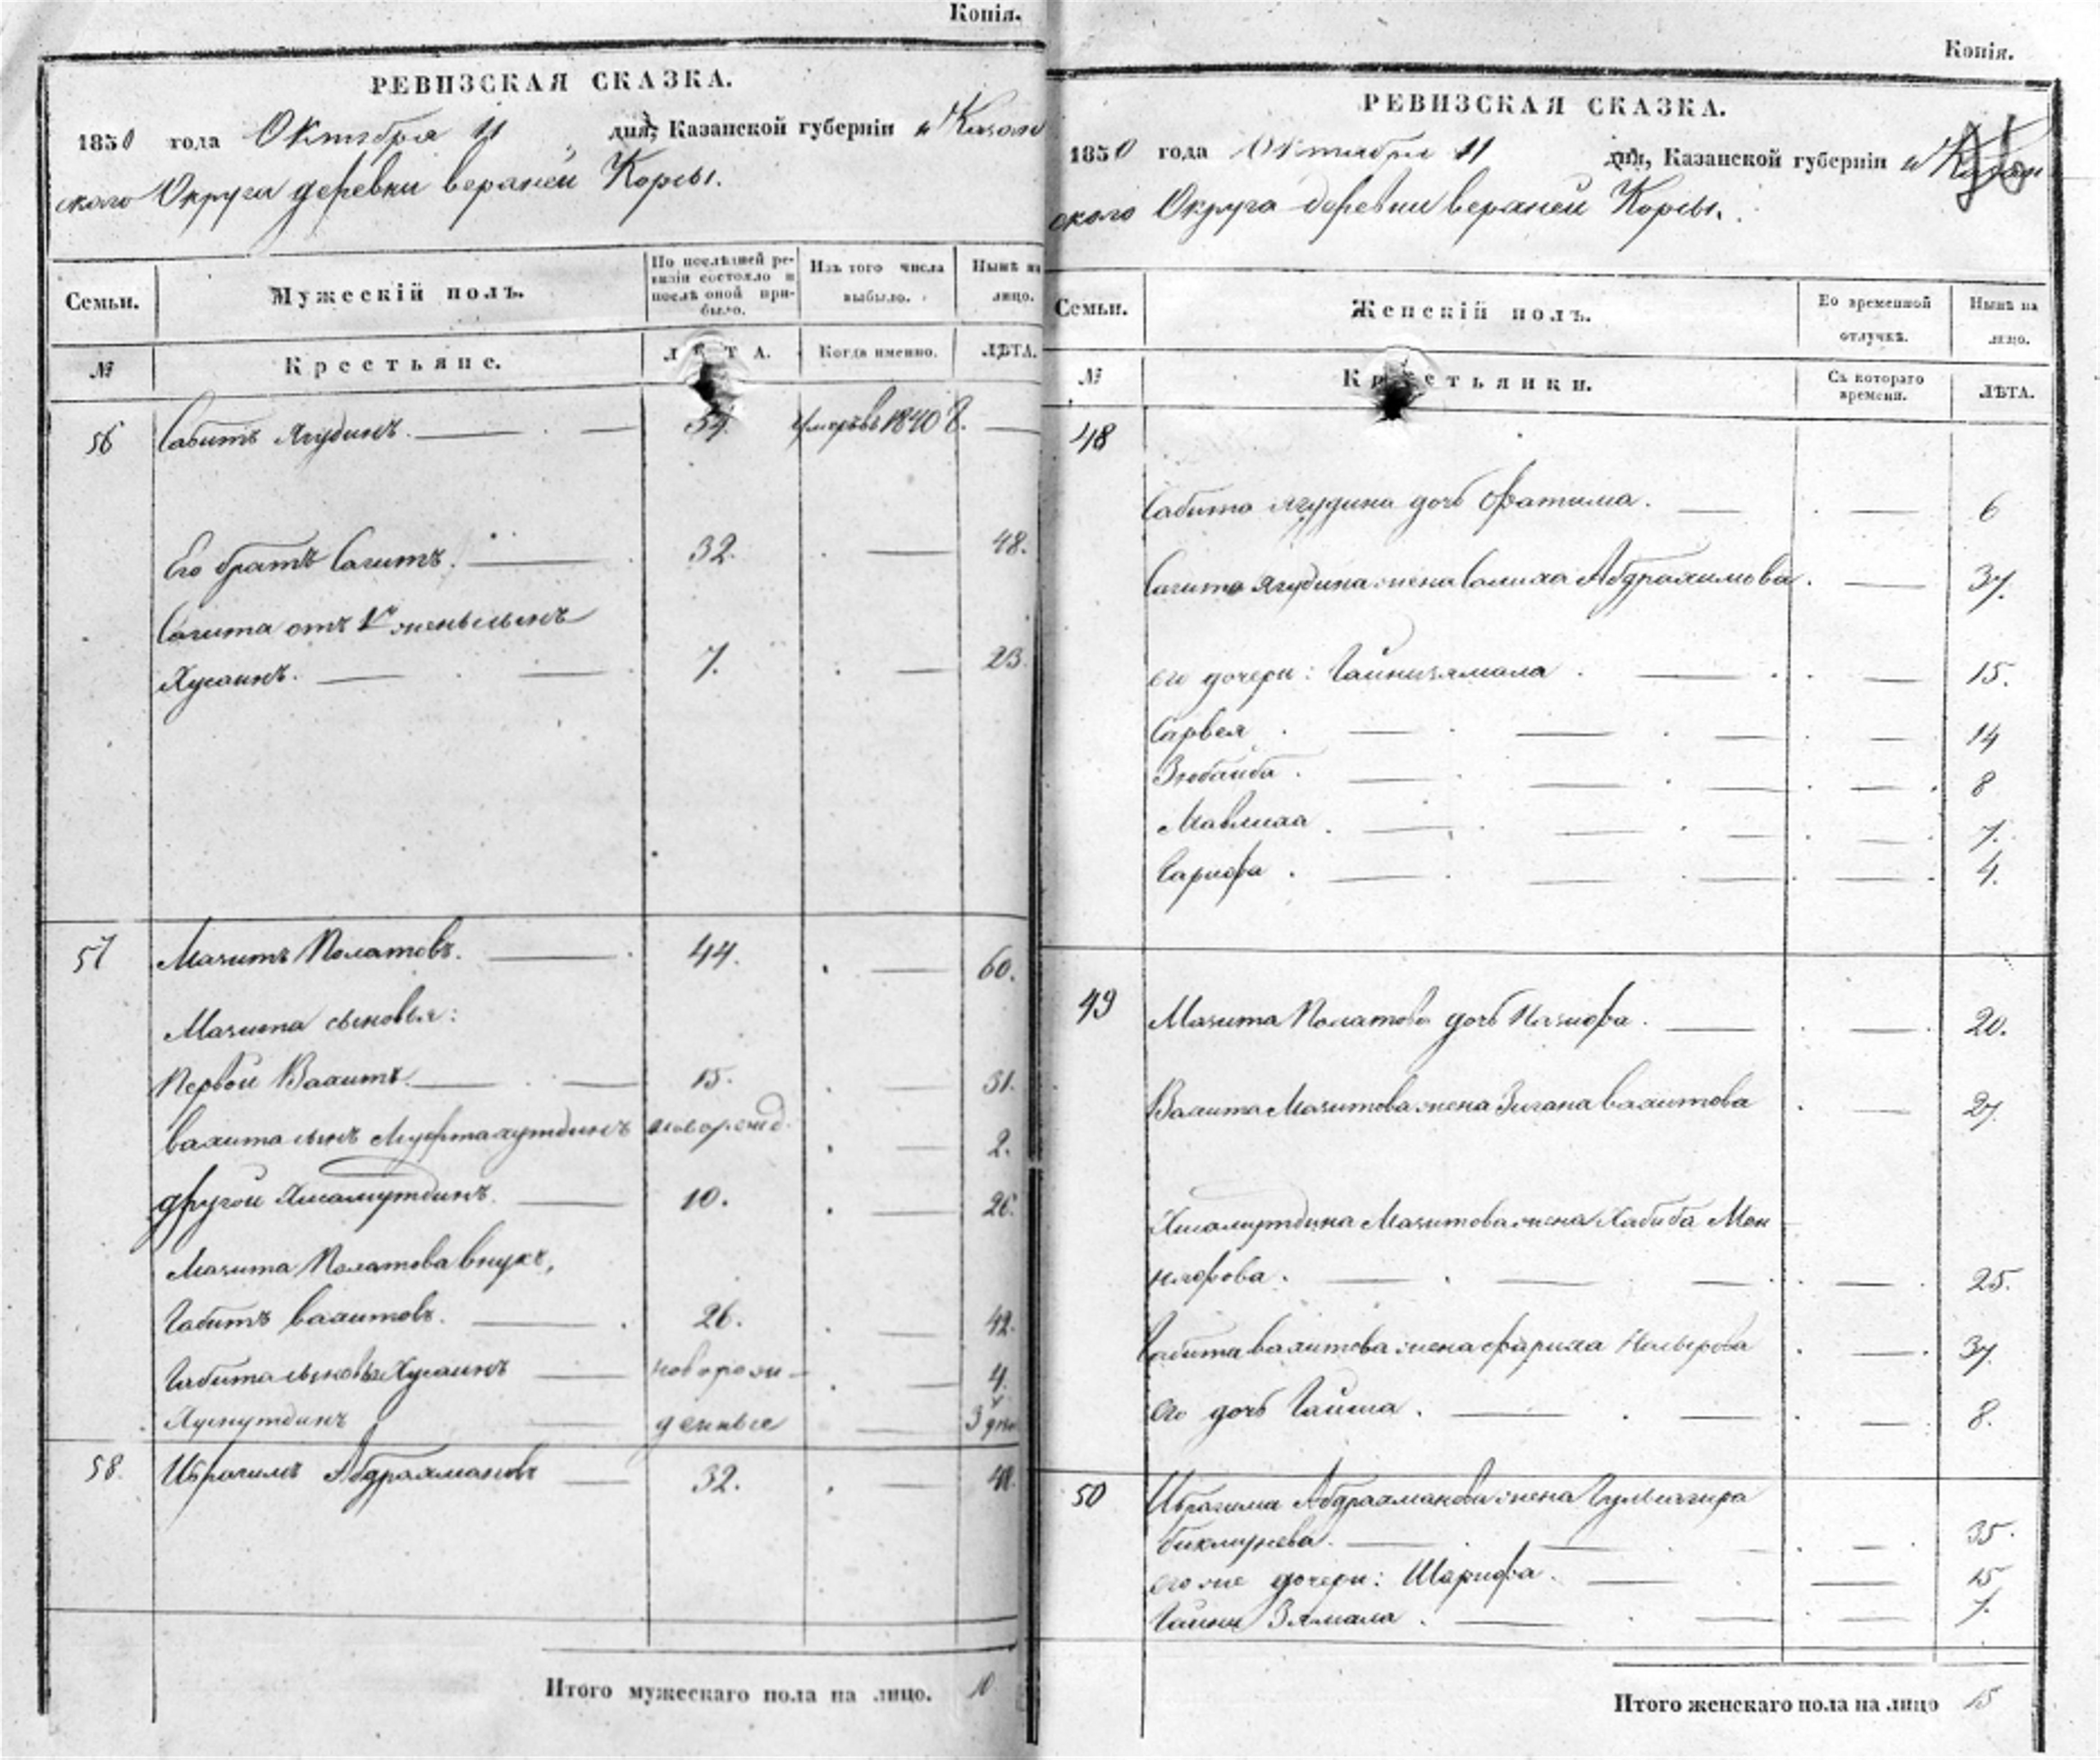 Копія.
РЕВИЗСКАЯ СКАЗКА.
1850 года Октября 11 дня, Казанской губерніи и Казан
скаго Округа деревни верхней Корсы.
Семьи.
Мужескій полъ.
По послѣдней ре-
визіи состояло и
послѣ оной при-
было.
Изъ того числа
выбыло.
Нынѣ на
лицо.
№
Крестьяне.
ЛѢТА.
Когда именно.
ЛѢТА.
56 Сабитъ Ягудинъ. 54. умеръ въ 1840 г.
Его братъ Сагитъ. 32. 48.
Сагита отъ 1й жены сынъ
Хусаинъ. 7. 23.
57 Мазитъ Полатовъ. 44. 60.
Мазита сыновья:
Первой Вахитъ 15. 31.
вахита сынъ Муфтахутдинъ новорожд. 2.
другой Хисамутдинъ 10. 26.
Мазита Полатова внукъ,
Габитъ вахитовъ. 26. 42.
Габита сыновья Хусаинъ новорож- 4
Хуснутдинъ денные 3 дни
58. Ибрагимъ Абдрахмановъ 32. 48.
Итого мужескаго пола на лицо. 10
Копія.
РЕВИЗСКАЯ СКАЗКА.
1850 года Октября 11 дня, Казанской губерніи и Казан
скаго Округа деревни верхней Корсы.
Семьи.
Женскій полъ.
Во временной
отлучкѣ.
Нынѣ на
лицо.
№
Крестьянки.
Съ котораго
времени.
ЛѢТА.
48
Сабита ягудина дочь Фатима. 6
Сагита Ягудина жена Салиха Абдрахимова. 37.
его дочери: Гайнизямала 15.
Сарвея 14
Зюбаиба 8
Мавлиха 7.
Гарифа 4.
49 Мазита Полатова дочь Назифа. 20.
Вахита Мазитова жена Зигана вахитова 27.
Хисамутдина Мазитова жена Хабиба Мон
няфова. 25.
Габита вахитова жена фариха Насырова 37.
его дочь Гайша. 8.
50 Ибрагима Абдрахманова жена Гульчагира
биктимирева. 35.
его же дочери: Шарифа. 15
Гайни Зямала. 7.
Итого женскаго пола на лицо 15